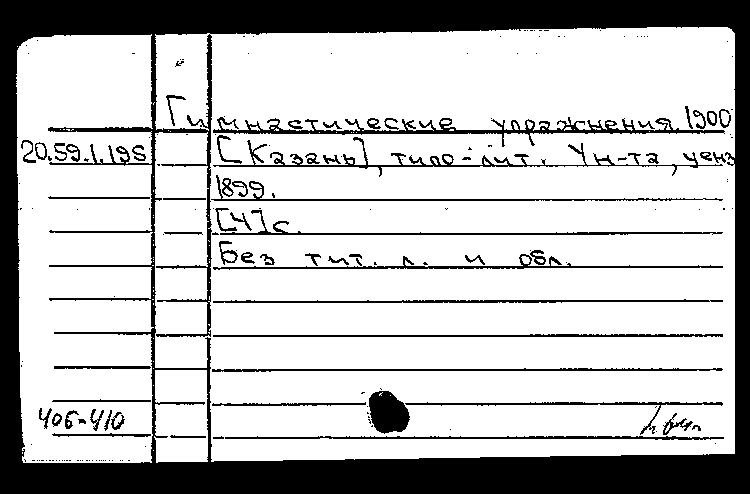 Гимнастические упражнения. 1900
20.59.1.195 [Казань], типо-лит. Ун-та, ценз
1899.
[4]с.
Без тит. л. и обл.
406-410